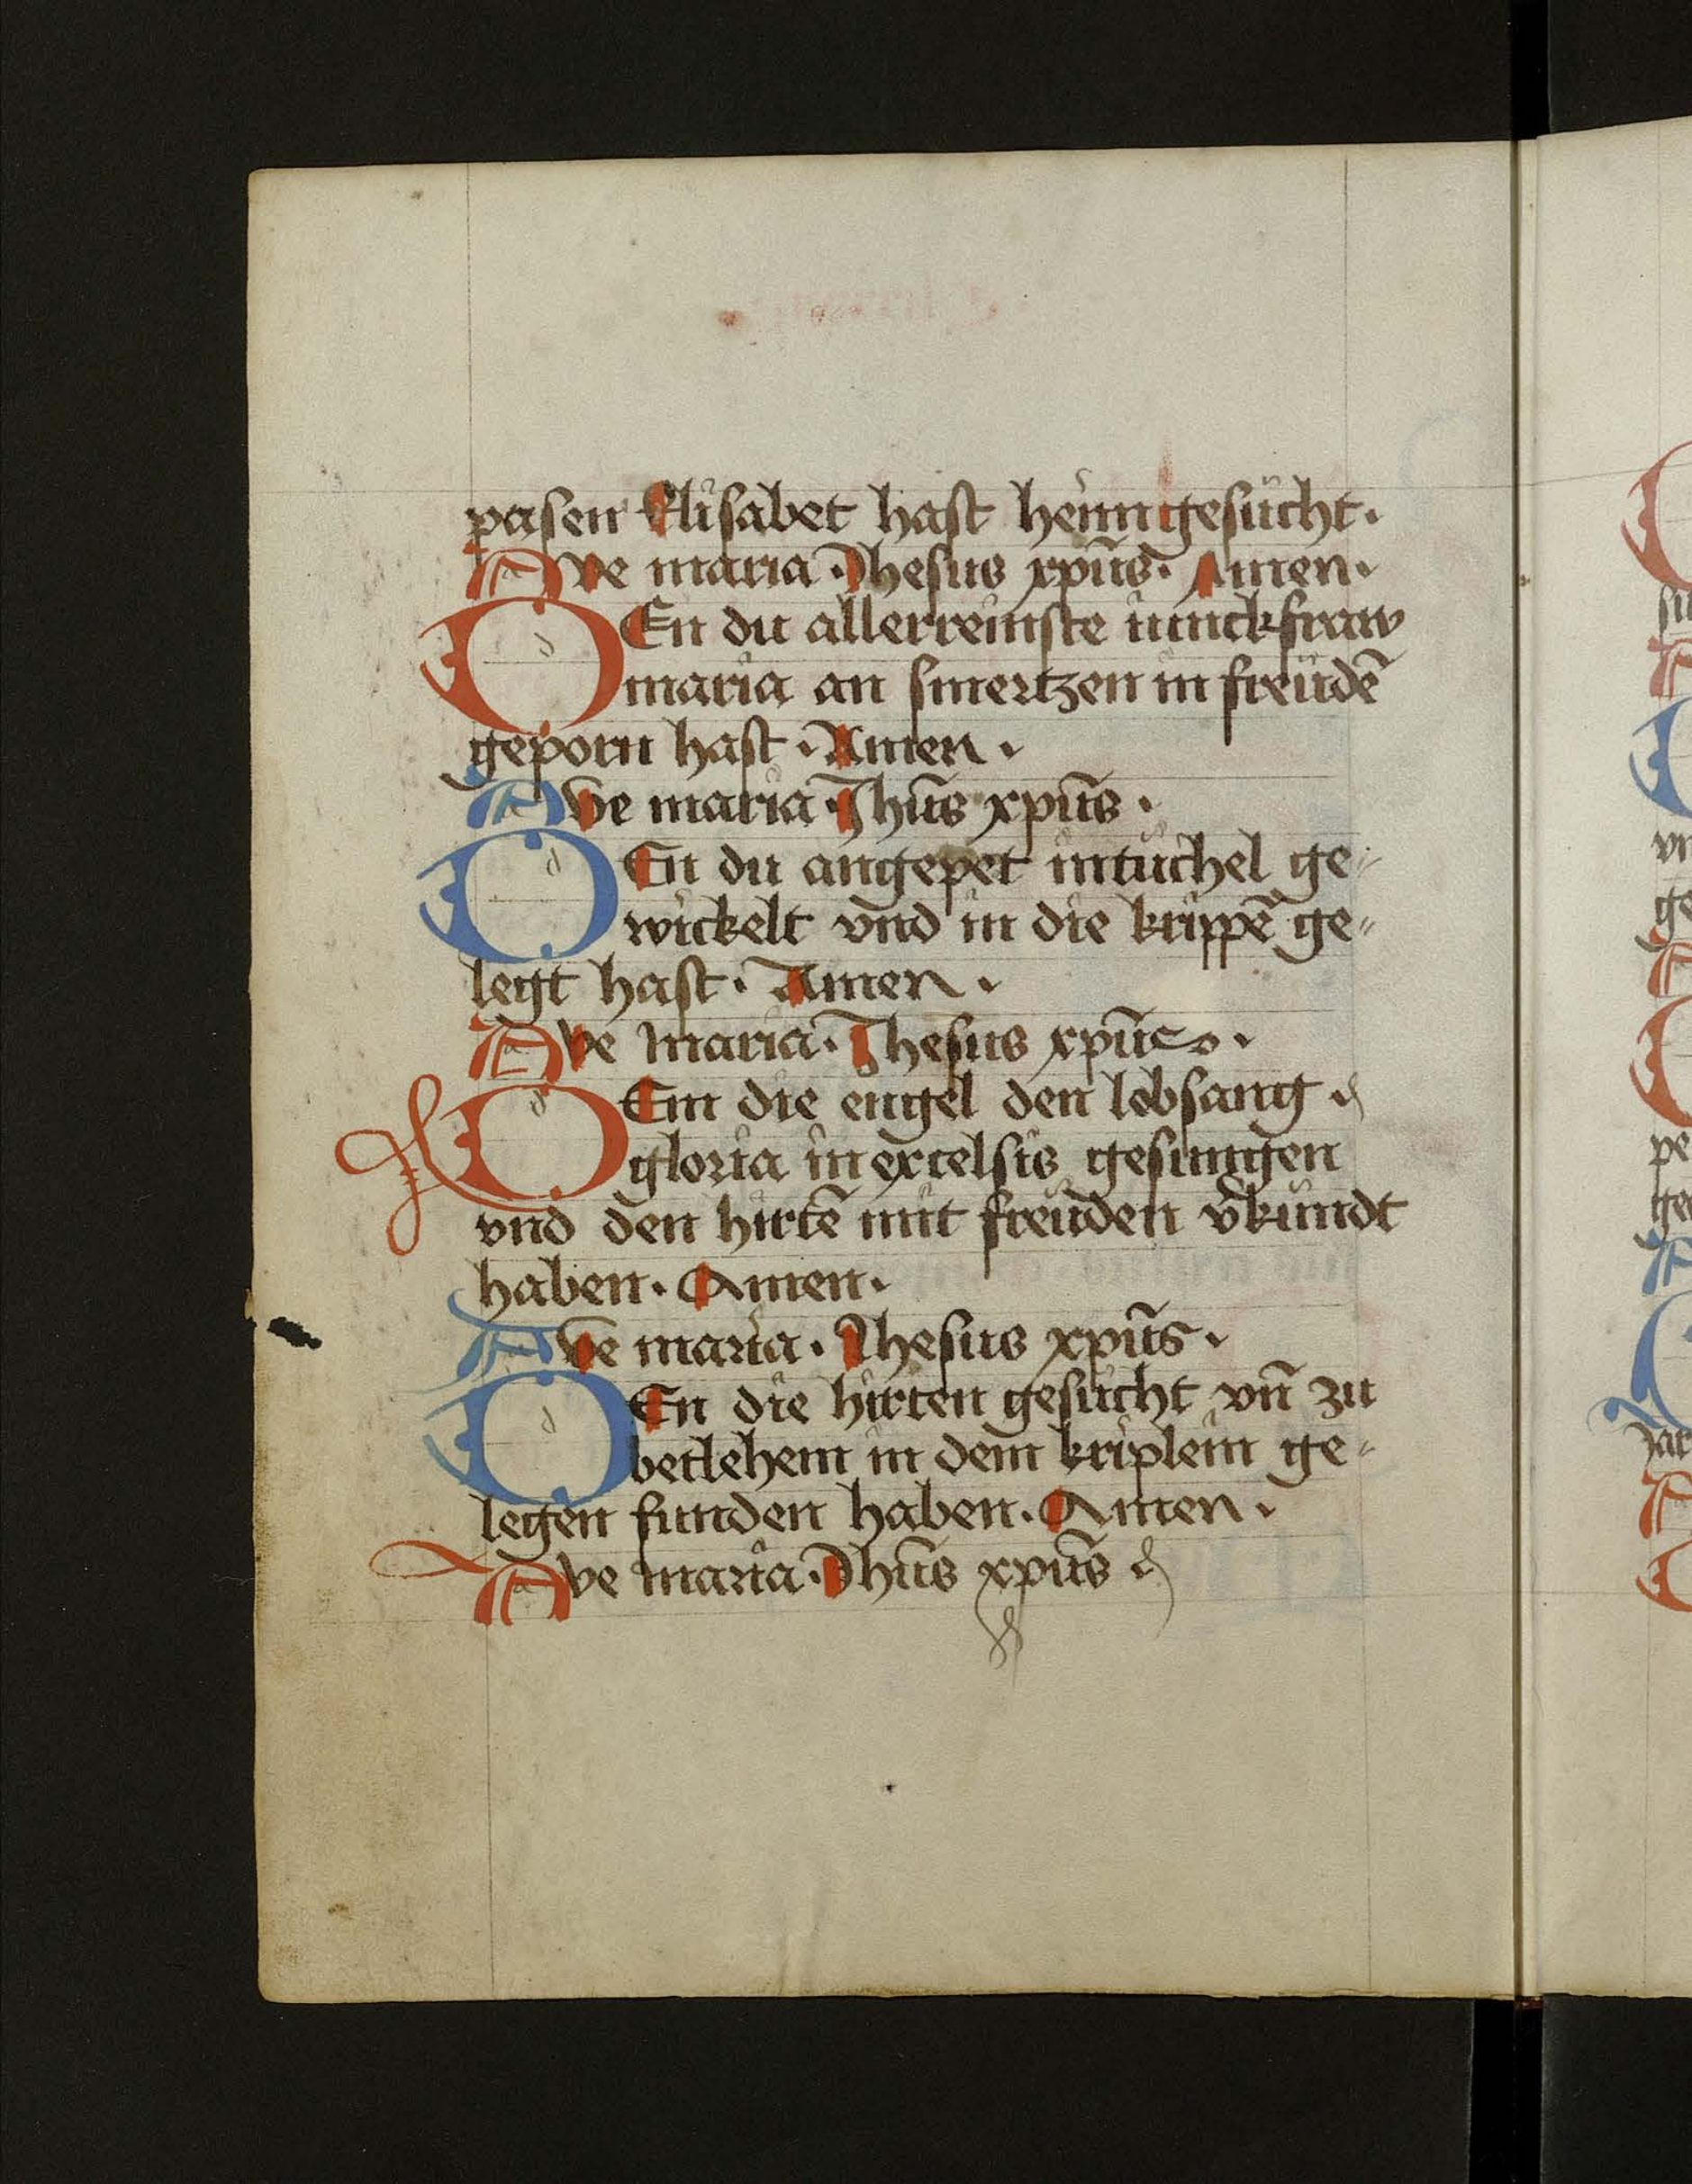 pasen Elisabet hast heimgesücht.
Ave maria. Jhesus xpūs. Amen.
DEn du allerreinste iunckfraw
maria an smertzen in freüdē
geporn hast. Amen.
Ave maria. Jhūs xpūs.
DEn du angepet intüchel ge-
wickelt vnd in die krippē ge-
legt hast. Amen.
Ave maria. Jhesus xpūs.
DEm die engel den lobsang
gloria in excelsis gesungen
vnd den hirtē mit freüden v̄kündt
haben. Amen.
Ave maria. Jhesus xpūs.
DEn die hirten gesücht vn̄ zu
betlehem in dem kriplein ge-
legen funden haben. Amen.
Ave maria. Jhūs xpūs